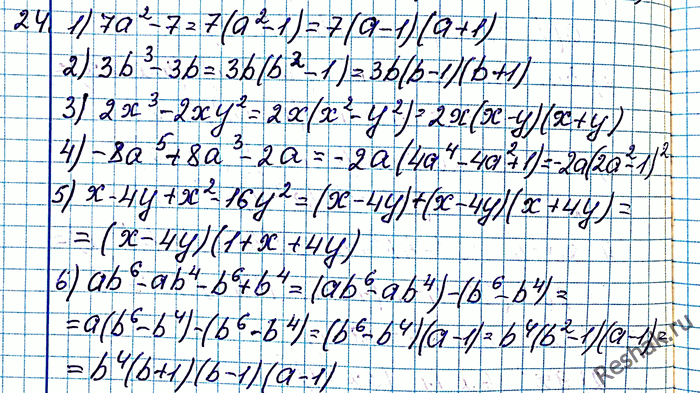 24. 1) 7a² - 7 = 7(a² - 1) = 7(a - 1)(a + 1)
2) 3b³ - 3b = 3b(b² - 1) = 3b(b - 1)(b + 1)
3) 2x³ - 2xy² = 2x(x² - y²) = 2x(x - y)(x + y)
4) -8a⁵ + 8a³ - 2a = -2a(4a⁴ - 4a² + 1) = -2a(2a² - 1)²
5) x - 4y + x² - 16y² = (x - 4y) + (x - 4y)(x + 4y) =
= (x - 4y)(1 + x + 4y)
6) ab⁶ - ab⁴ - b⁶ + b⁴ = (ab⁶ - ab⁴) - (b⁶ - b⁴) =
= a(b⁶ - b⁴) - (b⁶ - b⁴) = (b⁶ - b⁴)(a - 1) = b⁴(b² - 1)(a - 1) =
= b⁴(b + 1)(b - 1)(a - 1)
Reshak.ru